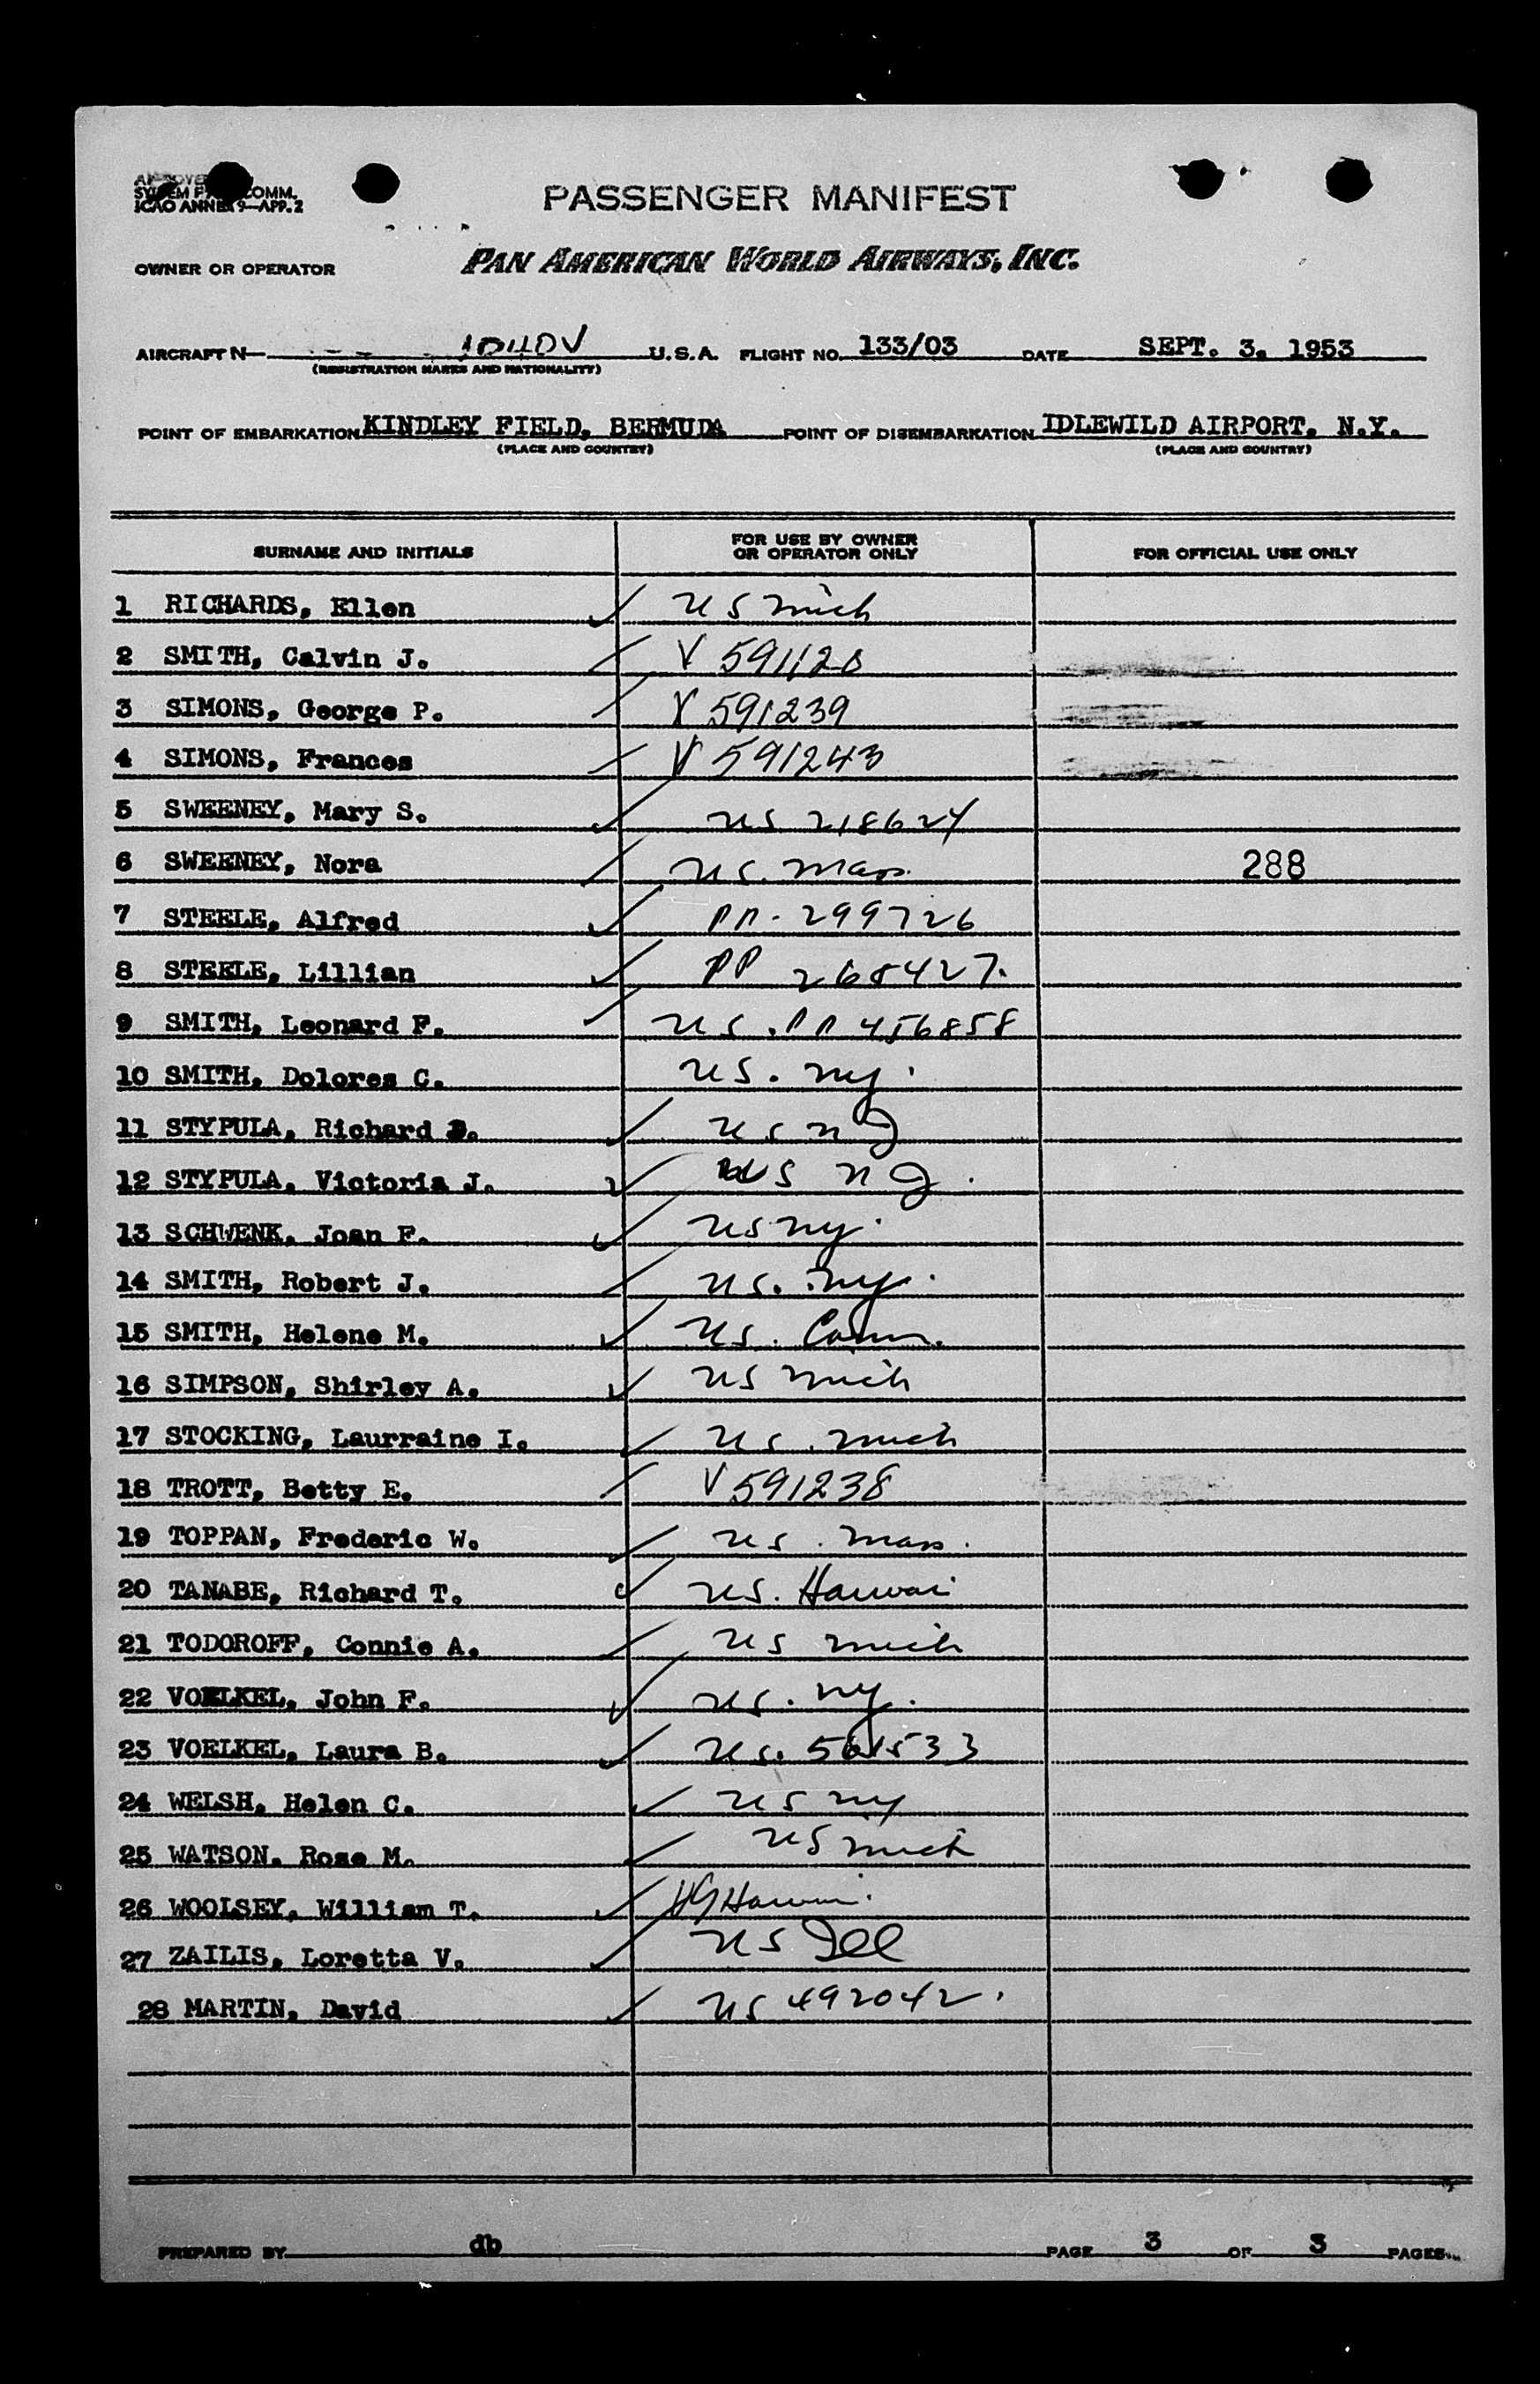 PASSENGER MANIFEST
ICAO ANNEX 9—APP. 2
OWNER OR OPERATOR PAN AMERICAN WORLD AIRWAYS, INC.
AIRCRAFT N 1040V U.S.A. FLIGHT NO. 133/03 DATE SEPT. 3. 1953
(REGISTRATION MARKS AND NATIONALITY)
POINT OF EMBARKATION KINDLEY FIELD, BERMUDA POINT OF DISEMBARKATION IDLEWILD AIRPORT, N.Y.
(PLACE AND COUNTRY) (PLACE AND COUNTRY)
SURNAME AND INITIALS FOR USE BY OWNER OR OPERATOR ONLY FOR OFFICIAL USE ONLY
1 RICHARDS, Ellen US Mich
2 SMITH, Calvin J. V 591120
3 SIMONS, George P. V 591239
4 SIMONS, Frances V 591243
5 SWEENEY, Mary S. US 218624
6 SWEENEY, Nora US. Mass. 288
7 STEELE, Alfred PP. 299726
8 STEELE, Lillian PP 268427.
9 SMITH, Leonard F. US. PP 456858
10 SMITH, Dolores C. US. NY.
11 STYPULA, Richard US NJ
12 STYPULA, Victoria J. US NJ.
13 SCHWENK, Joan F. US NY.
14 SMITH, Robert J. US. NY.
15 SMITH, Helene M. US. Conn.
16 SIMPSON, Shirley A. US Mich
17 STOCKING, Laurraine I. US. Mich
18 TROTT, Betty E. V 591238
19 TOPPAN, Frederic W. US. Mass.
20 TANABE, Richard T. US. Hawaii
21 TODOROFF, Connie A. US Mich
22 VOELKEL, John F. US. NY.
23 VOELKEL, Laura B. US. 561533
24 WELSH, Helen C. US NY
25 WATSON, Rose M. US Mich
26 WOOLSEY, William T. US Hawaii.
27 ZAILIS, Loretta V. US Ill
28 MARTIN, David US 492042.
PREPARED BY db PAGE 3 OF 3 PAGES